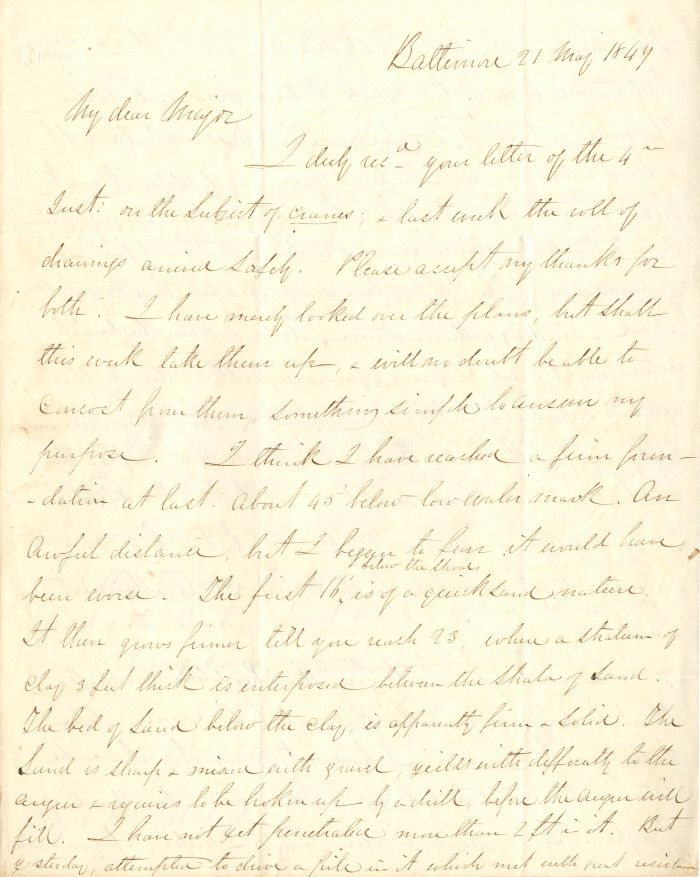 Baltimore 21 May 1849
My dear Major
I duly recd. your letter of the 4th
Inst: on the subject of cranes; & last week the roll of
drawings arrived safely. Please accept my thanks for
both. I have merely looked over the plans, but shall
this week take them up, & will no doubt be able to
concoct from them, something simple to answer my
purpose. I think I have reached a firm foun-
-dation at last. About 45' below low water mark. An
awful distance, but I began to fear it would have
been worse. The first 16' below the shoal, is of a quicksand nature.
It then grows firmer till you reach 23', where a stratum of
clay 3 feet thick is interposed between the strata of sand.
The bed of sand below the clay, is apparently firm & solid. The
sand is sharp & mixed with gravel, yields with difficulty to the
auger & requires to be broken up by a drill, before the auger will
fill. I have not yet penetrated more than 2 ft in it. But
yesterday, attempted to drive a pile in it which met with great resistance